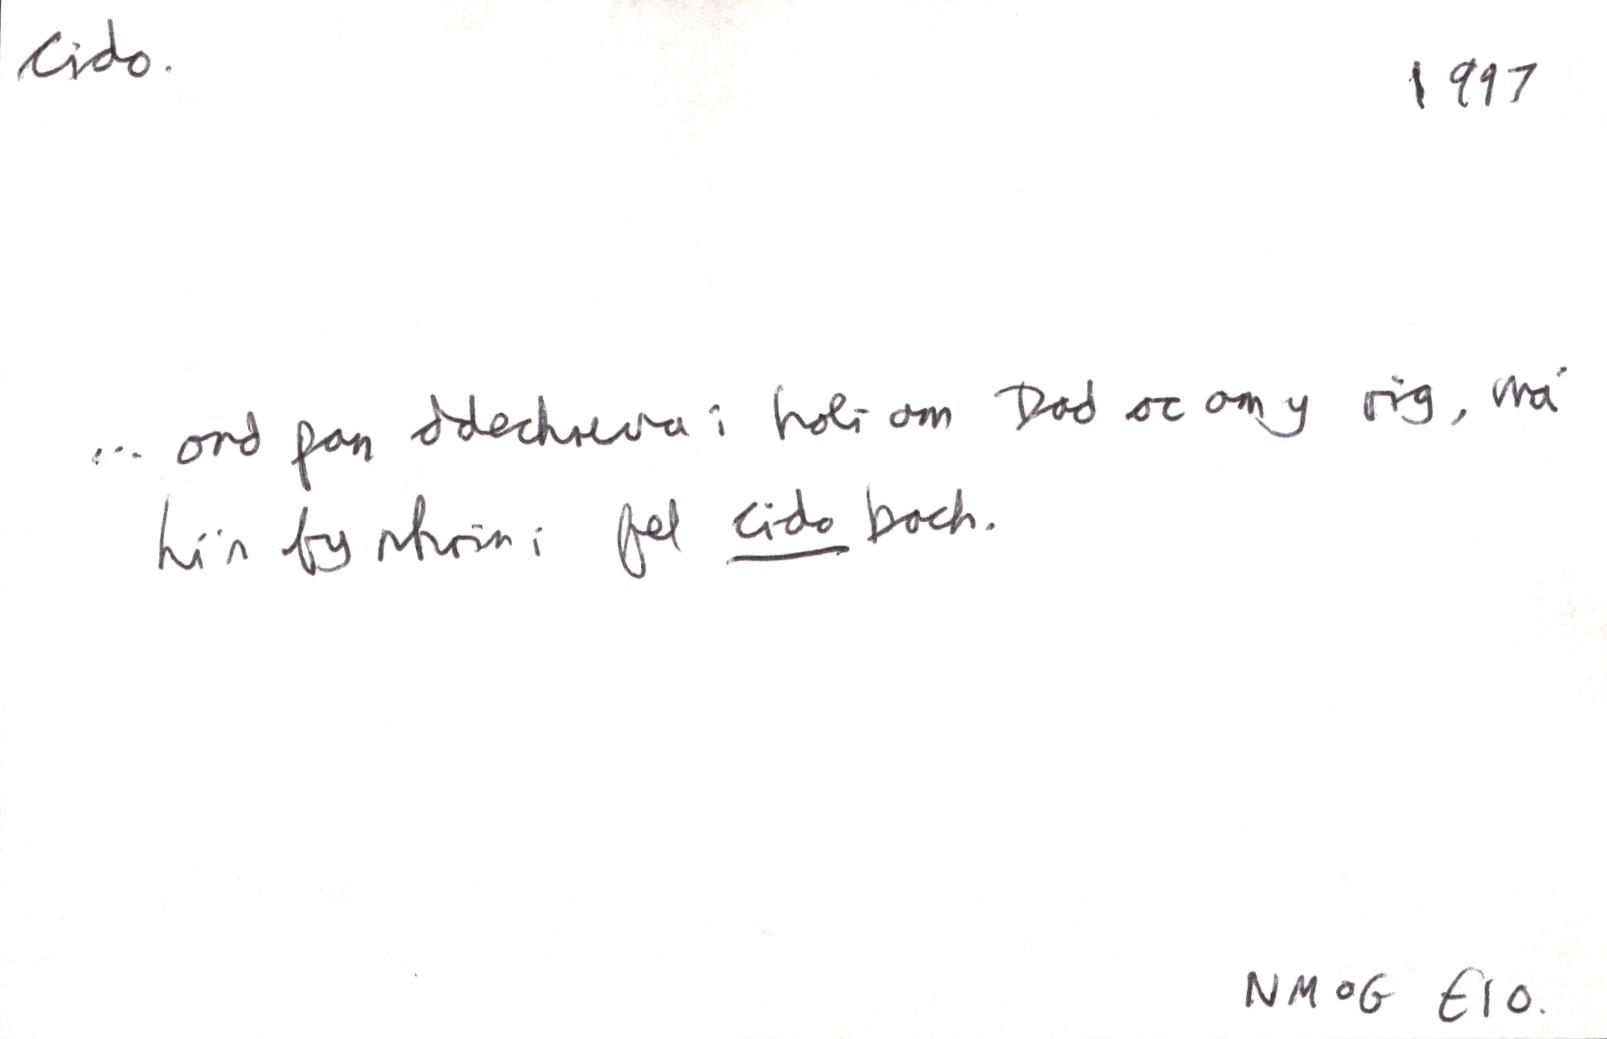 Cido.
1997
... ond pan ddechreua i holi am Dad ac am y rig, ma'
hi'n fy nhrin i fel cido bach.
NMOG E10.